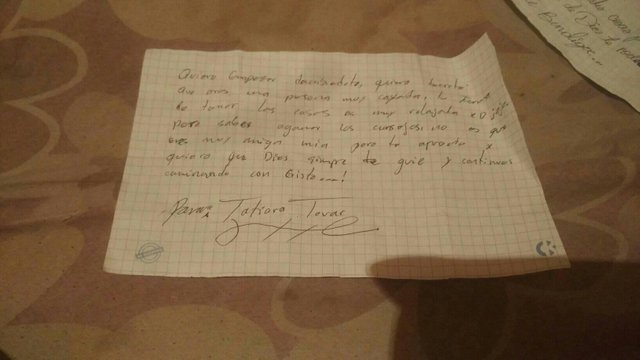 Quiero Empezar diciendote, quiero decirte
que eres una persona muy copada. L
de tomar las cosas es muy relajada xD jiji
pero sabes agarrar los consejos, no es que
eres muy amiga mia pero te aprecio y
quiero que Dios siempre te guie y continues
caminando con Cristo...!
Para: Tatiana Tovar
de Dios te
Bendiga...